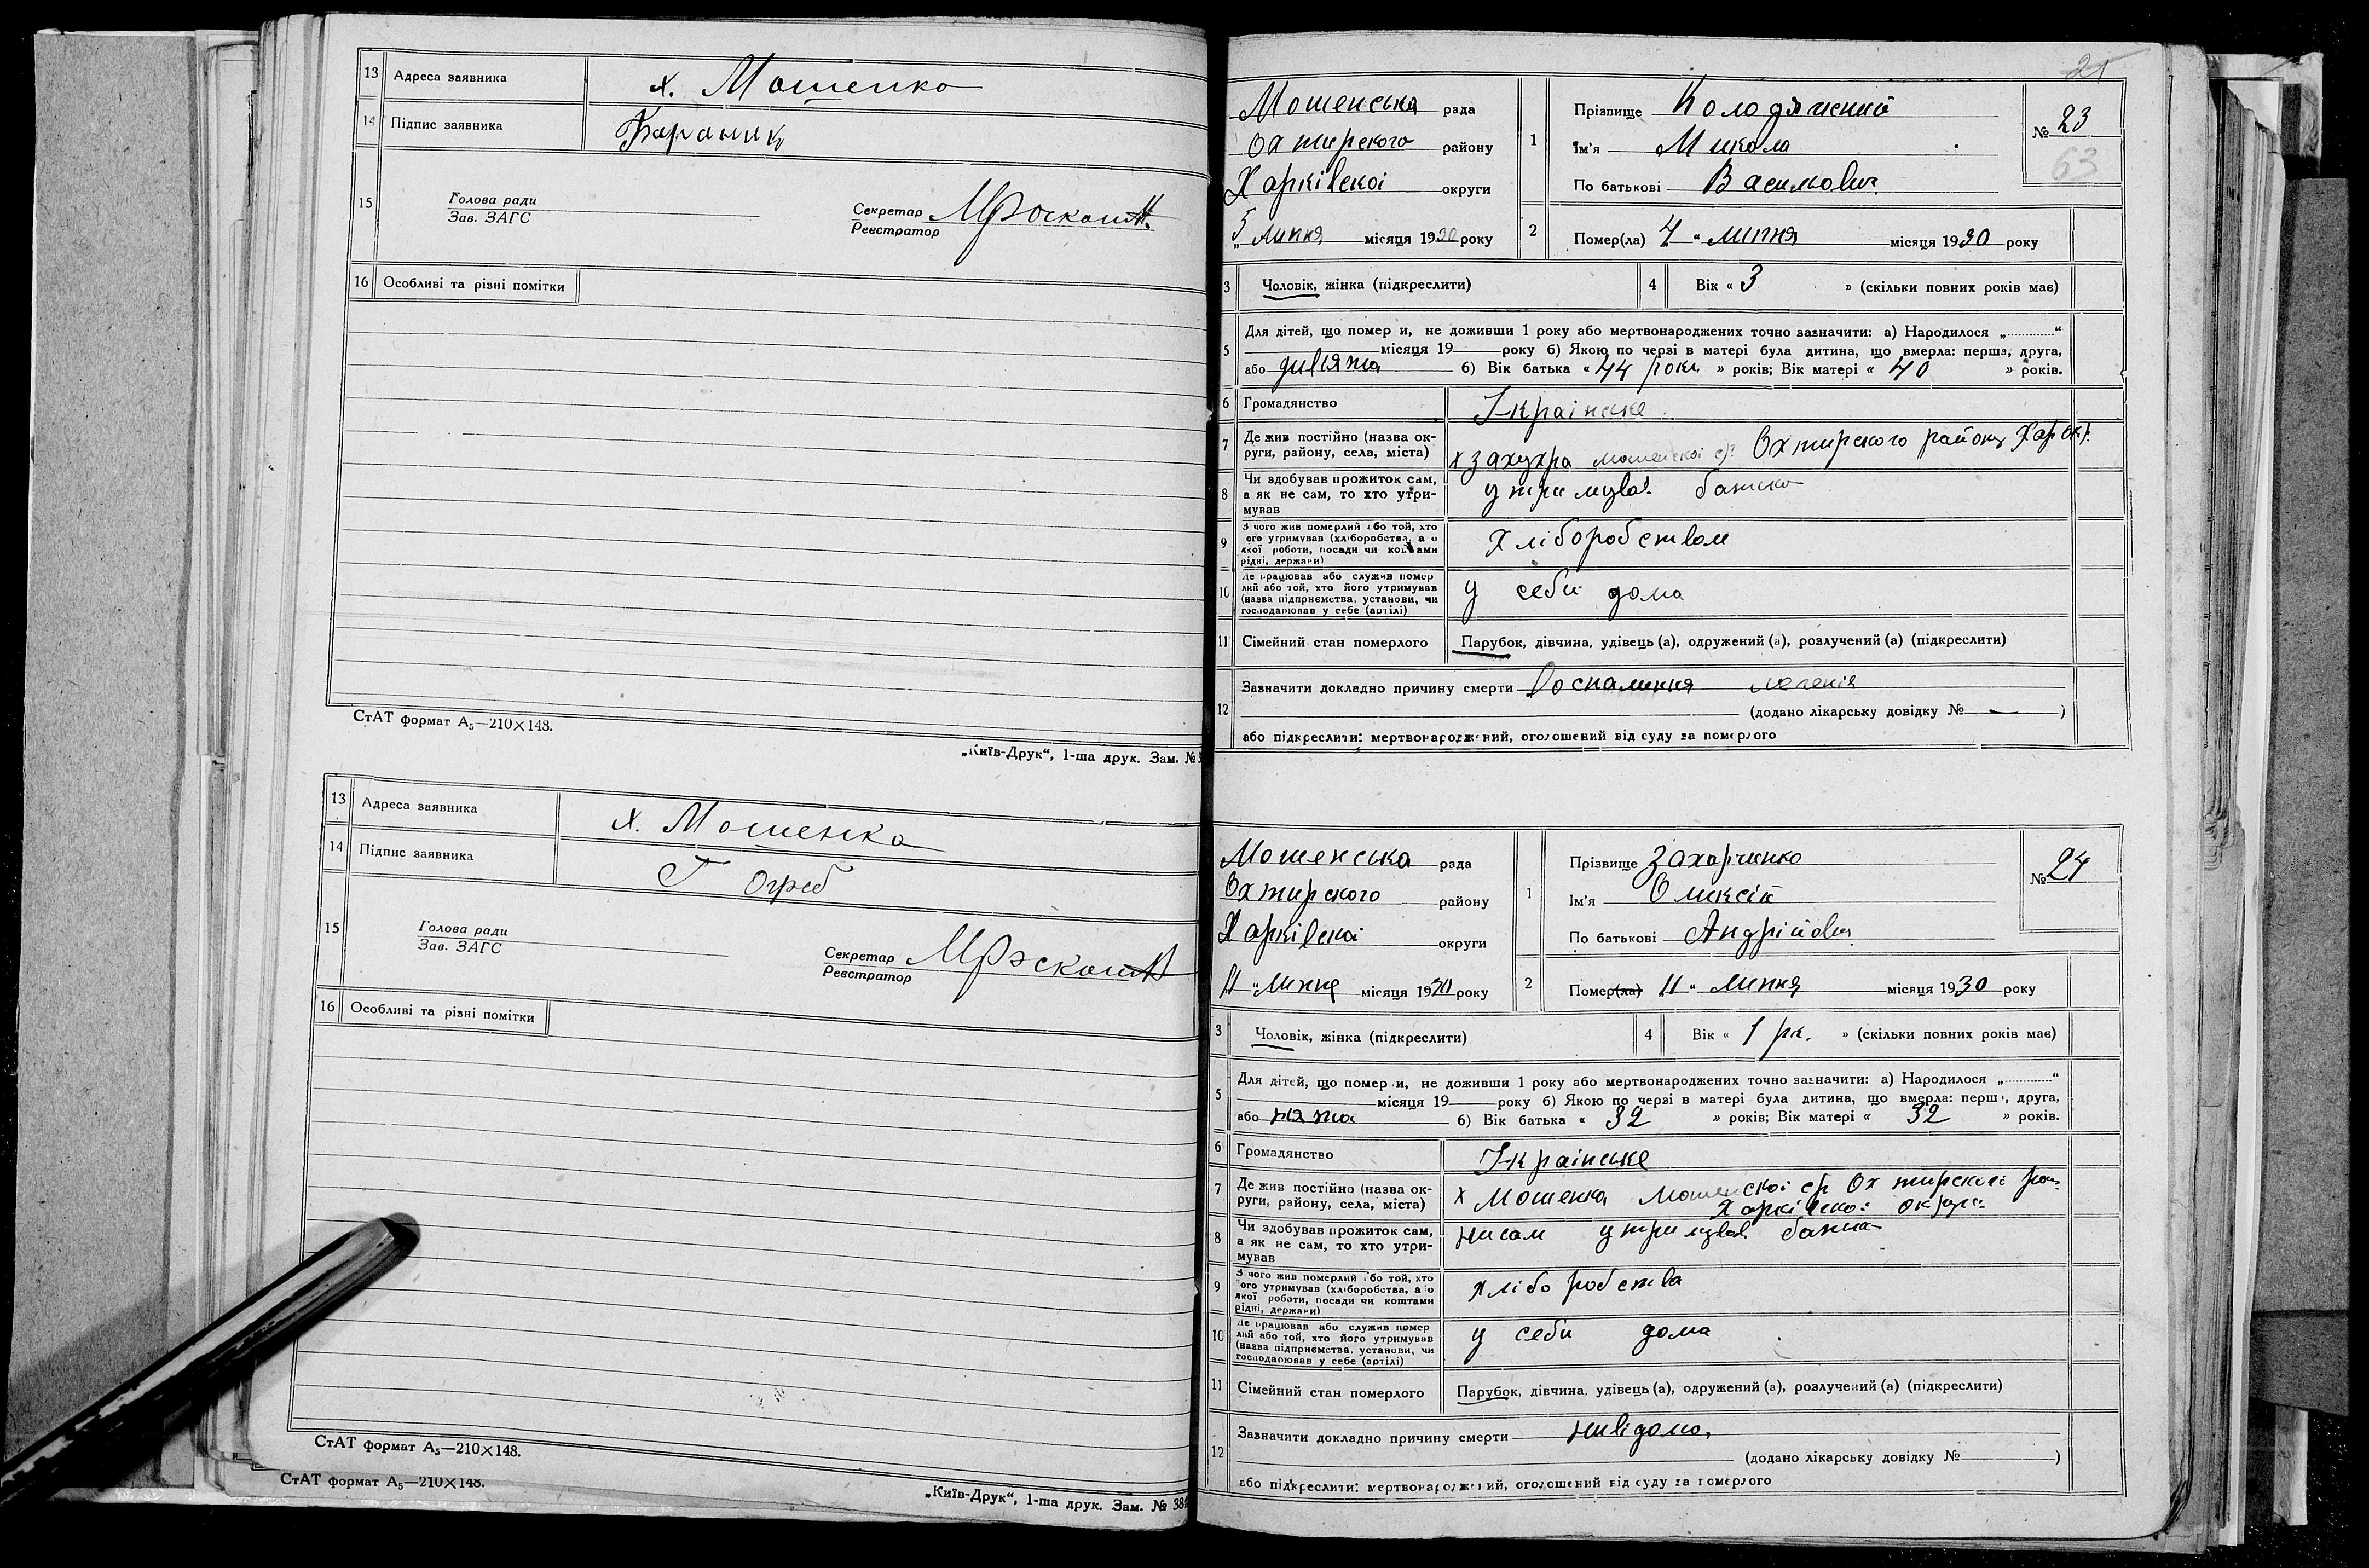 13 Адреса заявника х. Мошенко
14 Підпис заявника Бараник
15 Голова ради
Зав. ЗАГС
Секретар
Реєстратор
16 Особливі та різні помітки
СтАТ формат А5—210×148.
„Київ-Друк“, 1-ша друк. Зам. №
13 Адреса заявника х. Мошенка
14 Підпис заявника Г Огреб
15 Голова ради
Зав. ЗАГС
Секретар
Реєстратор
16 Особливі та різні помітки
СтАТ формат А5—210×148.
СтАТ формат А5—210×148.
„Київ-Друк“, 1-ша друк. Зам. № 38
21
Мошенська рада
Охтирского району
Харківскоі округи
5 „ Липня місяця 1930 року
1 Прізвище
Ім'я Микола
По батькові Васильович
№ 23
63
2 Помер(ла) 4 “ липня місяця 1930 року
3 Чоловік, жінка (підкреслити)
4 Вік « 3 » (скільки повних років має)
5 Для дітей, що помер и, не доживши 1 року або мертвонароджених точно зазначити: а) Народилося „.............“
місяця 19 року б) Якою по черзі в матері була дитина, що вмерла: перша, друга,
або дивята б) Вік батька « 44 роки » років; Вік матері « 40 » років.
6 Громадянство Українське
7 Де жив постійно (назва ок-
руги, району, села, міста) х Мошенскоі с/р Охтирского району Хар окр.
8 Чи здобував прожиток сам,
а як не сам, то хто утри-
мував утримував батько
9 З чого жив померлий або той, хто
ого утримував (хліборобства, а о
якої роботи, посади чи коштами
рідні, держави) Хлібороб ством
10 Де працював або служив помер
лий або той, хто його утримував
(назва підприємства, установи, чи
господарював у себе (артілі) у себи дома
11 Сімейний стан померлого Парубок, дівчина, удівець (а), одружений (а), розлучений (а) (підкреслити)
12 Зазначити докладно причину смерти Воспалиння легенів
(додано лікарську довідку № — )
або підкреслити: мертвонароджений, оголошений від суду за померлого
Мошенська рада
Охтирского району
Харківскоі округи
11 “ Липня місяця 1930 року
1 Прізвище Захарченко
Ім'я Оликсій
По батькові Андрійович
№ 24
2 Помер(ла) 11 “ липня місяця 1930 року
3 Чоловік, жінка (підкреслити)
4 Вік « 1 рік. » (скільки повних років має)
5 Для дітей, що помер и, не доживши 1 року або мертвонароджених точно зазначити: а) Народилося „.............“
місяця 19 року б) Якою по черзі в матері була дитина, що вмерла: перша, друга,
або пята б) Вік батька « 32 » років; Вік матері « 32 » років.
6 Громадянство Українське
7 Де жив постійно (назва ок-
руги, району, села, міста) х Мошенка Мошенскоі ср Охтирского рай
Харківскоі округи
8 Чи здобував прожиток сам,
а як не сам, то хто утри-
мував нисам утримував батько
9 З чого жив померлий або той, хто
ого утримував (хліборобства, а о
якої роботи, посади чи коштами
рідні, держави) хлібо робства
10 Де працював або служив помер
лий або той, хто його утримував
(назва підприємства, установи, чи
господарював у себе (артілі) у себи дома
11 Сімейний стан померлого Парубок, дівчина, удівець (а), одружений (а), розлучений (а) (підкреслити)
12 Зазначити докладно причину смерти нивідомо,
(додано лікарську довідку № )
або підкреслити: мертвонароджений, оголошений від суду за померлого